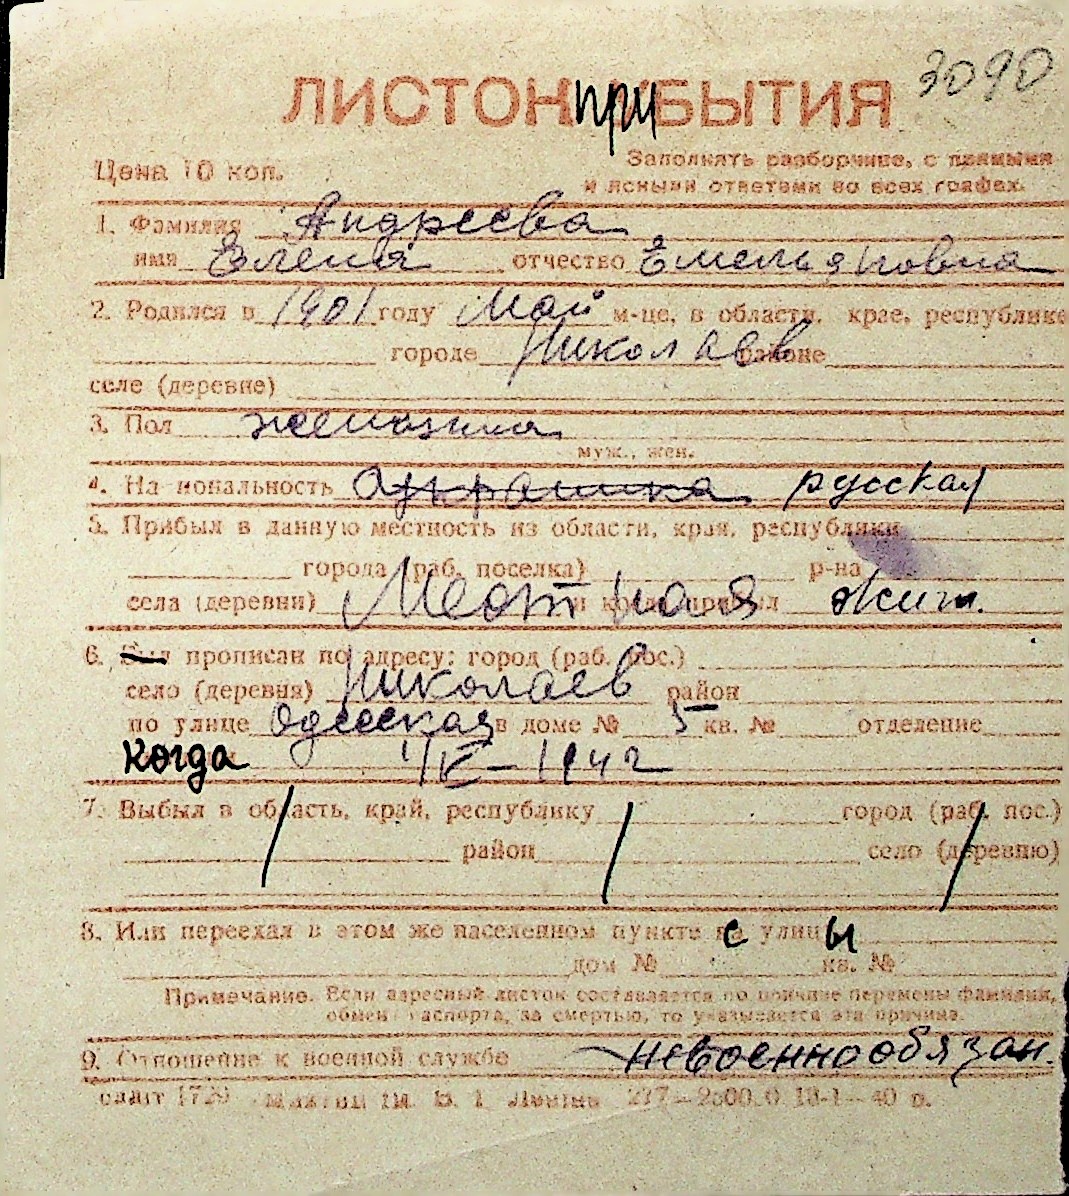 3090
ЛИСТОК ПРИБЫТИЯ
Цена 10 коп.
Заполнять разборчиво, с прямыми
и ясными ответами во всех графах.
1. Фамилия Андреева
имя Елена отчество Емельяновна
2. Родился в 1901 году Май м-це, в области, крае, республике
городе Николаев районе
селе (деревне)
3. Пол женщина
муж., жен.
4. Национальность русская
5. Прибыл в данную местность из области, края, республики
города (раб. поселка) р-на
села (деревни) Местная жит.
6. Был прописан по адресу: город (раб. пос.)
село (деревня) Николаев район
по улице Одесская в доме № 5 кв. № отделение
когда
7. Выбыл в область, край, республику город (раб. пос.)
район село (деревню)
8. Или переехал в этом же населенном пункте с улицы
дом № кв. №
Примечание. Если адресный листок составляется по причине перемены фамилии,
обмена паспорта, за смертью, то указывается эта причина.
9. Отношение к военной службе невоеннообязан.